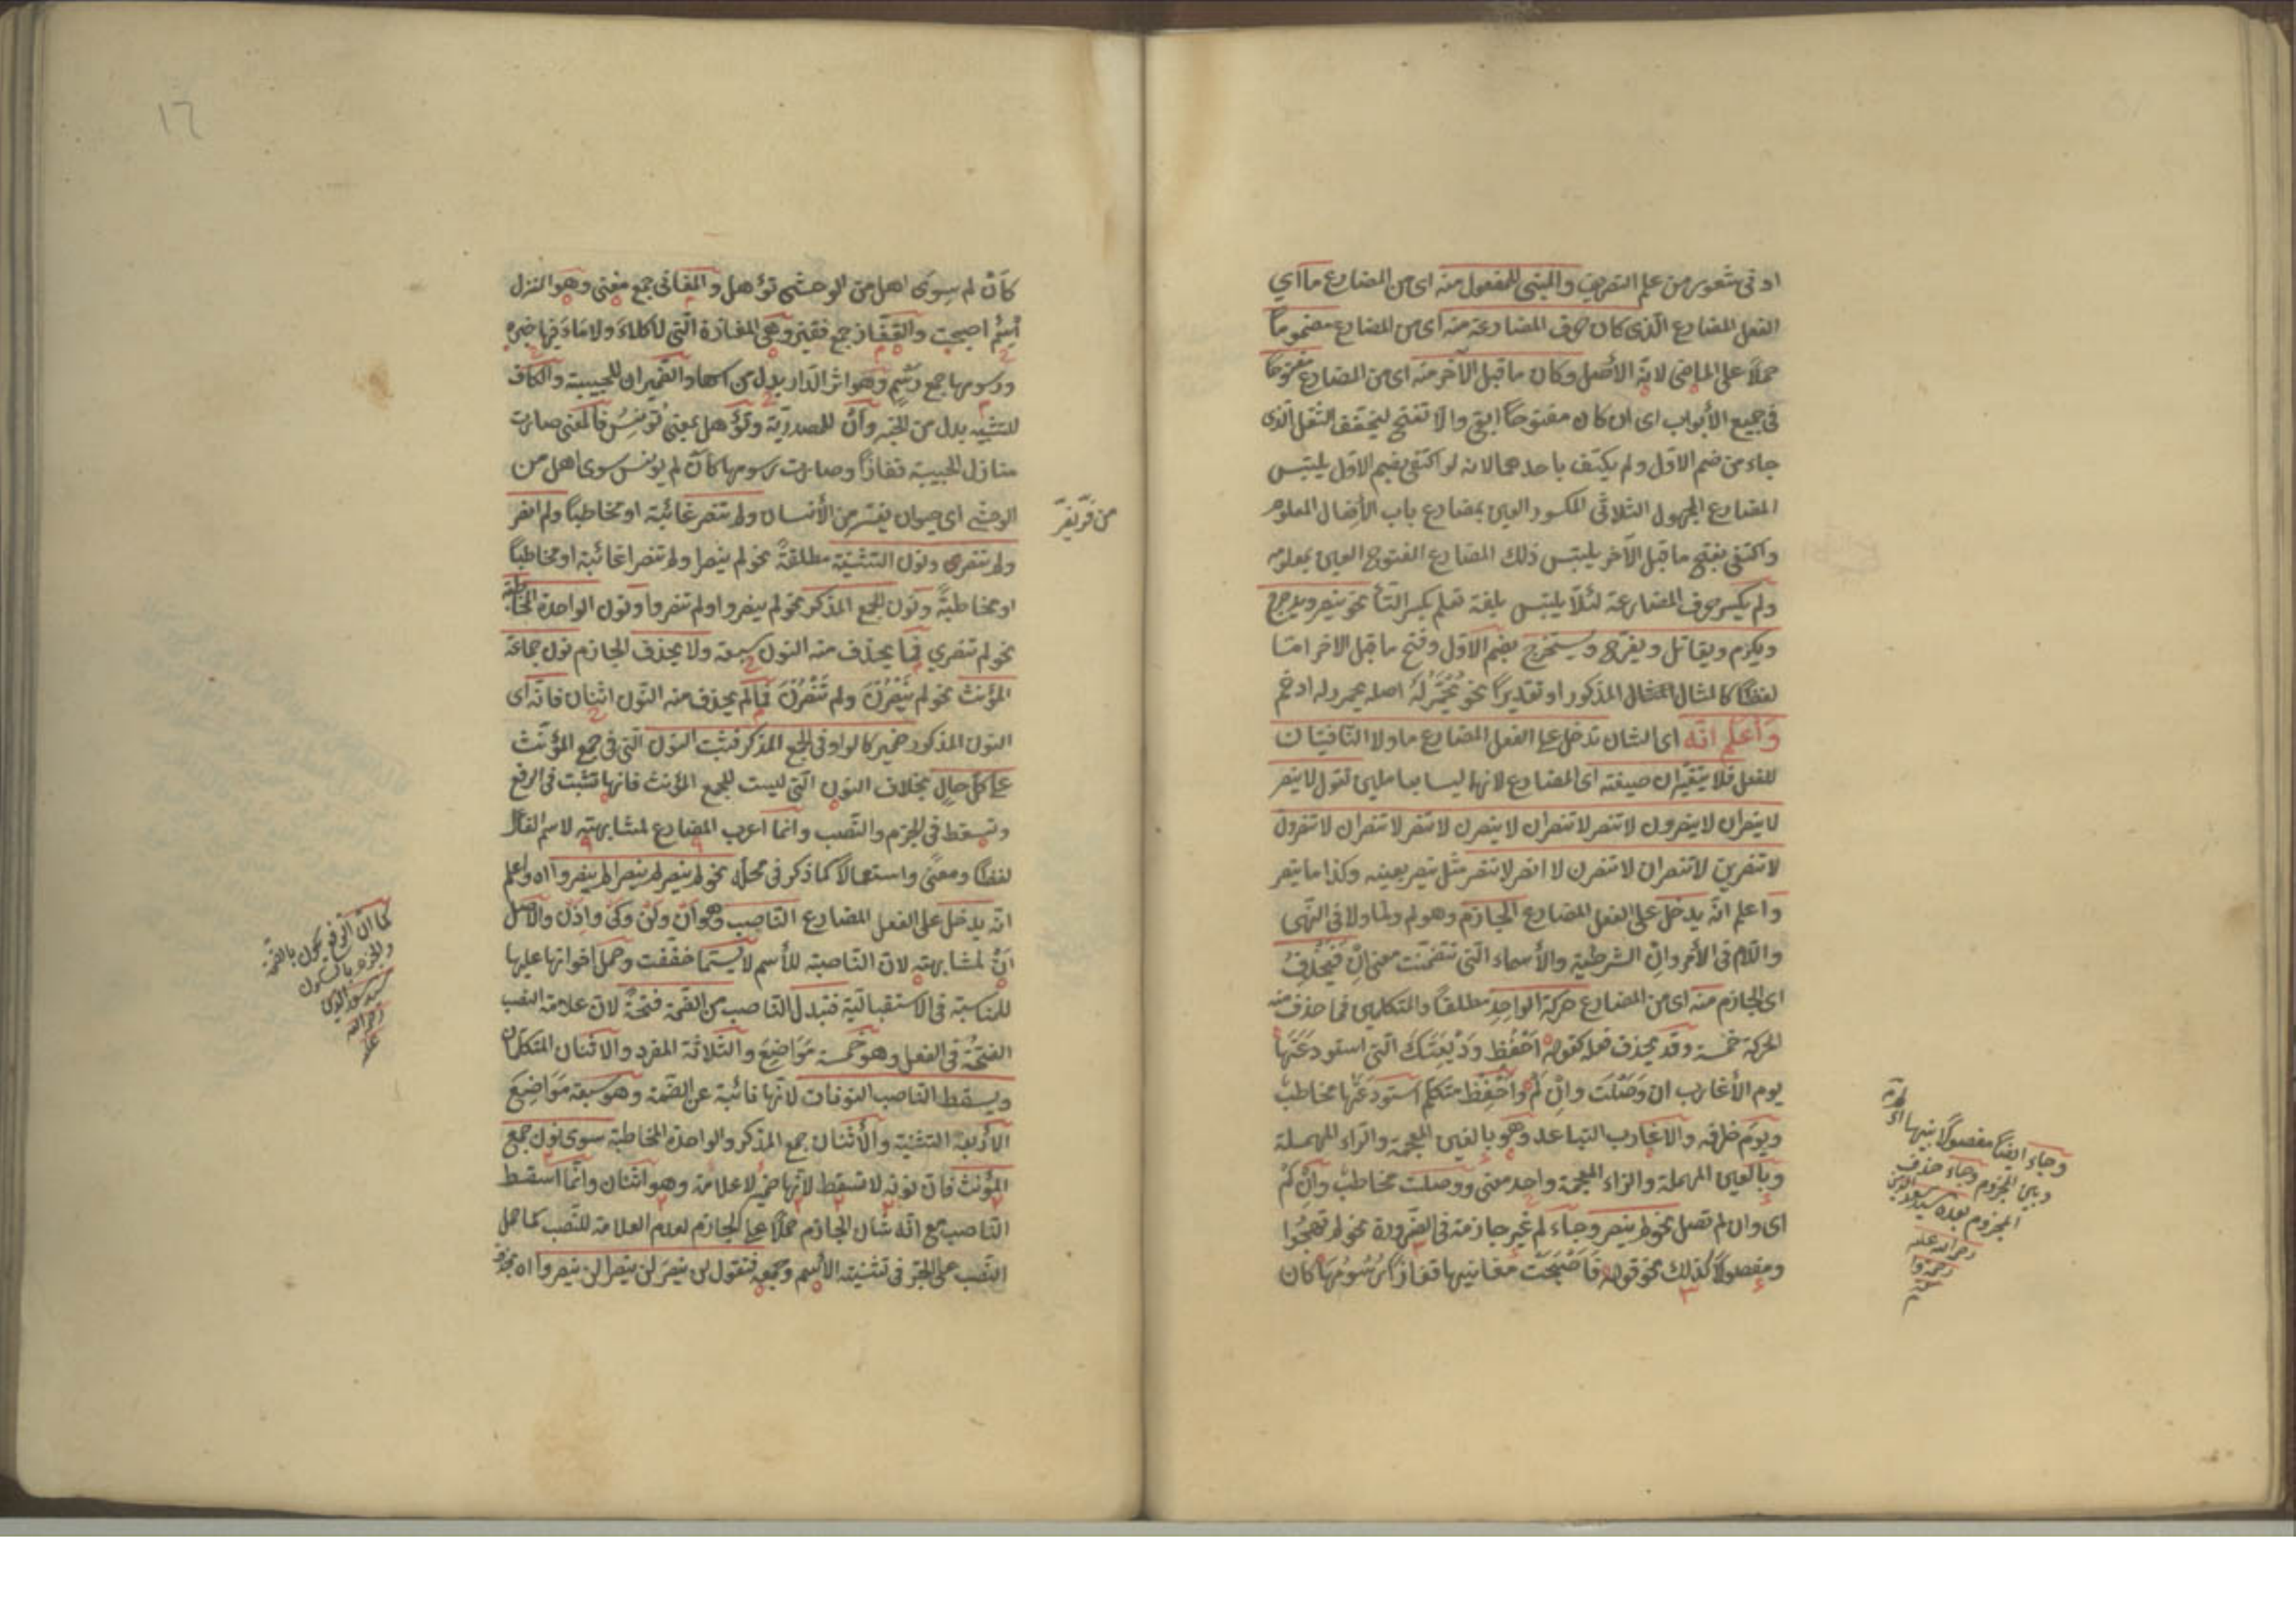 ادنى شعور من علم التصريف والمبنى للمفعول منه اى من المضارع ما اي
الفعل المضارع الّذى كان حرف المضارعة منه اى من المضارع مضموماً
حملاً على الماضى لانّه الأصل وكان ما قبل الآخر منه اى من المضارع مفتوحاً
فى جميع الأبواب اى ان كان مفتوحاً ابقى والّا تفتح ليخفف الثقل الّذى
جاء من ضم الاوّل ولم يكتف باحدهما لانه لو اكتفى بضم الاوّل يلتبس
المضارع المجهول الثلاثى المكسور العين بمضارع باب الأفعال المعلوم
واكتفى بفتح ما قبل الآخر يلتبس ذلك المضارع المفتوح العين بمعلومه
ولم يكسر حرف المضارعة لئلّا يلتبس بلغة تعلم بكسر التاء نحو ينصر ويدحرج
ويكرم ويقاتل ويفرّح ويستخرج بضم الاوّل وفتح ما قبل الاخر امّا
لفظاً كالمثال المذكور او تقديراً نحو يُحْمَرُّ لَهُ اصله يحمرر له ادغم
وَاعلم انّه اى الشان تدخل على الفعل المضارع ما ولا النّافيتان
للفعل فلا يتغيّران صيغته اى المضارع لانهما ليسا بعاملين تقول لا ينصر
لا ينصران لا ينصرون لا تنصر لا تنصران لا ينصرن لا تنصر لا تنصران لا تنصرون
لا تنصرين لا تنصران لا تنصرن لا انصر لا ننصر مثل ينصر بعينه وكذا ما ينصر
واعلم انّه يدخل على الفعل المضارع الجازم وهو لم ولمّا ولا فى النّهى
واللّام فى الأمر وانِ الشرطية والأسماء الّتى تضمّنت معنى انْ فَيَحْذِفُ
اى الجازم منه اى من المضارع حركة الواحِدِ مطلقاً والمتكلمين فما حذف منه
الحركة خمسة وقد يحذف فعله كقوله اَحْفُظ وَدِيْعَتَكَ الّتى استودعْتَهَا
يوم الأغارب ان وَصَلْتَ وانْ لَمْ وَاحْفِظ متكلم استودعْتَها مخاطب
ويَوْمَ ظرفه والاغارب التباعد وهو بالغين المعجمة والرّاء المهملة
وبالعين المهملة والزاء المعجمة واحد معنى ووصلت مخاطب وَانْ لَمْ
اى وان لم تصل نحو لم ينصر وجاء لم غير جازمة فى الضّرورة نحو لم تهجُوا
ومفصولاً كذلك نحو قوله فَاَصْبَحَتْ مغانيها قفاراً رُسُومُهَا كان
وجاء ايضاً مفصولاً بينها اى لم
وبين المجزوم وجاء حذف
المجزوم بعده سيد سعد الدين
رحمة الله عليه
كَأَنْ لم سِوى اهل من الوحش تؤهل والمغانى جمع مغنى وهو المنزل
اسْمُ اصبحت والقفار جمع قفير وهى المفازة الّتى لا كلاءَ ولا مَاءَ فيها خبره
ورسومها جمع رَسْمٍ وهو اثر الدّار بدل من اسمها والضّميران للحبيبة والكاف
للتشبيه بدل من الخبر وأنْ للمصدريّة وتؤهل بمعنى تُونِسُ فالمعنى صارت
منازل الحبيبة قفاراً وصارت رسومها كَأَن لم يونس سوى اهل من
الوحش اى حيوان ينفر من الأنسان ولم تنصر غائبة او مخاطباً ولم انصر
ولم ننصر ونون التثنية مطلقةً نحو لم ينصرا ولم تنصرا غائبة او مخاطباً
او مخاطبةً ونون الجمع المذكر نحو لم ينصروا ولم تنصروا ونون الواحدة المخاطبة
نحو لم تنصري فما يحذف منه النون سبعة ولا يحذف الجازم نون جماعة
المؤنث نحو لم يَنْصُرْنَ ولم تَنْصُرْنَ فما لم يحذف منه النّون اثنان فانّه اى
النون المذكور ضمير كالواو فى الجمع المذكر فثبت النون الّتى فى جمع المؤنّث
على كلّ حالٍ بخلاف النون الّتى ليست للجمع المؤنث فانها تثبت فى الرفع
وتسقط فى الجزم والنّصب وانما اعرب المضارع لمشابهته لاسم الفاعل
لفظاً ومعنىً واستعمالاً كما ذكر فى محلّه نحو لم ينصر لم ينصرا لم ينصروا اه واعلم
انّه يدخل على الفعل المضارع النّاصب وهو اَن ولن وكى واذن والأصل
اَنْ لمشابهته لانّ النّاصبة للأسم لا يستما خفّفت وحمل اخواتها عليها
للمناسبة فى الاستقباليّة فتبدل النّاصب من الضّمة فتحةً لان علامة النصب
الفتحة فى الفعل وهو خمسة مَوَاضِعَ والثلاثة المفرد والاثنان المتكلمان
ويسقط النّاصب النونات لانّها نائبة عن الضّمة وهو سبعة مَوَاضِعَ
الأربعة التثنية والأثنان جمع المذكر والواحدة المخاطبة سوى نون جمع
المؤنث فانّ نونه لا تسقط لانّها ضمير لا علامة وهو اثنان وانّما اسقط
النّاصب مع انّه شان الجازم حملاً على الجازم لعدم العلامة للنّصب كما حمل
النّصب على الجرّ فى تثنيته الأسم وجمعه فتقول لن ينصرَ لن ينصرا لن ينصروا اه
من فَرّ يَفِرّ
كما انّ الرفع يكون بالضّمة
والجزم بالسكون
سيد سعد الدين
رحمة الله
عليه
١٦